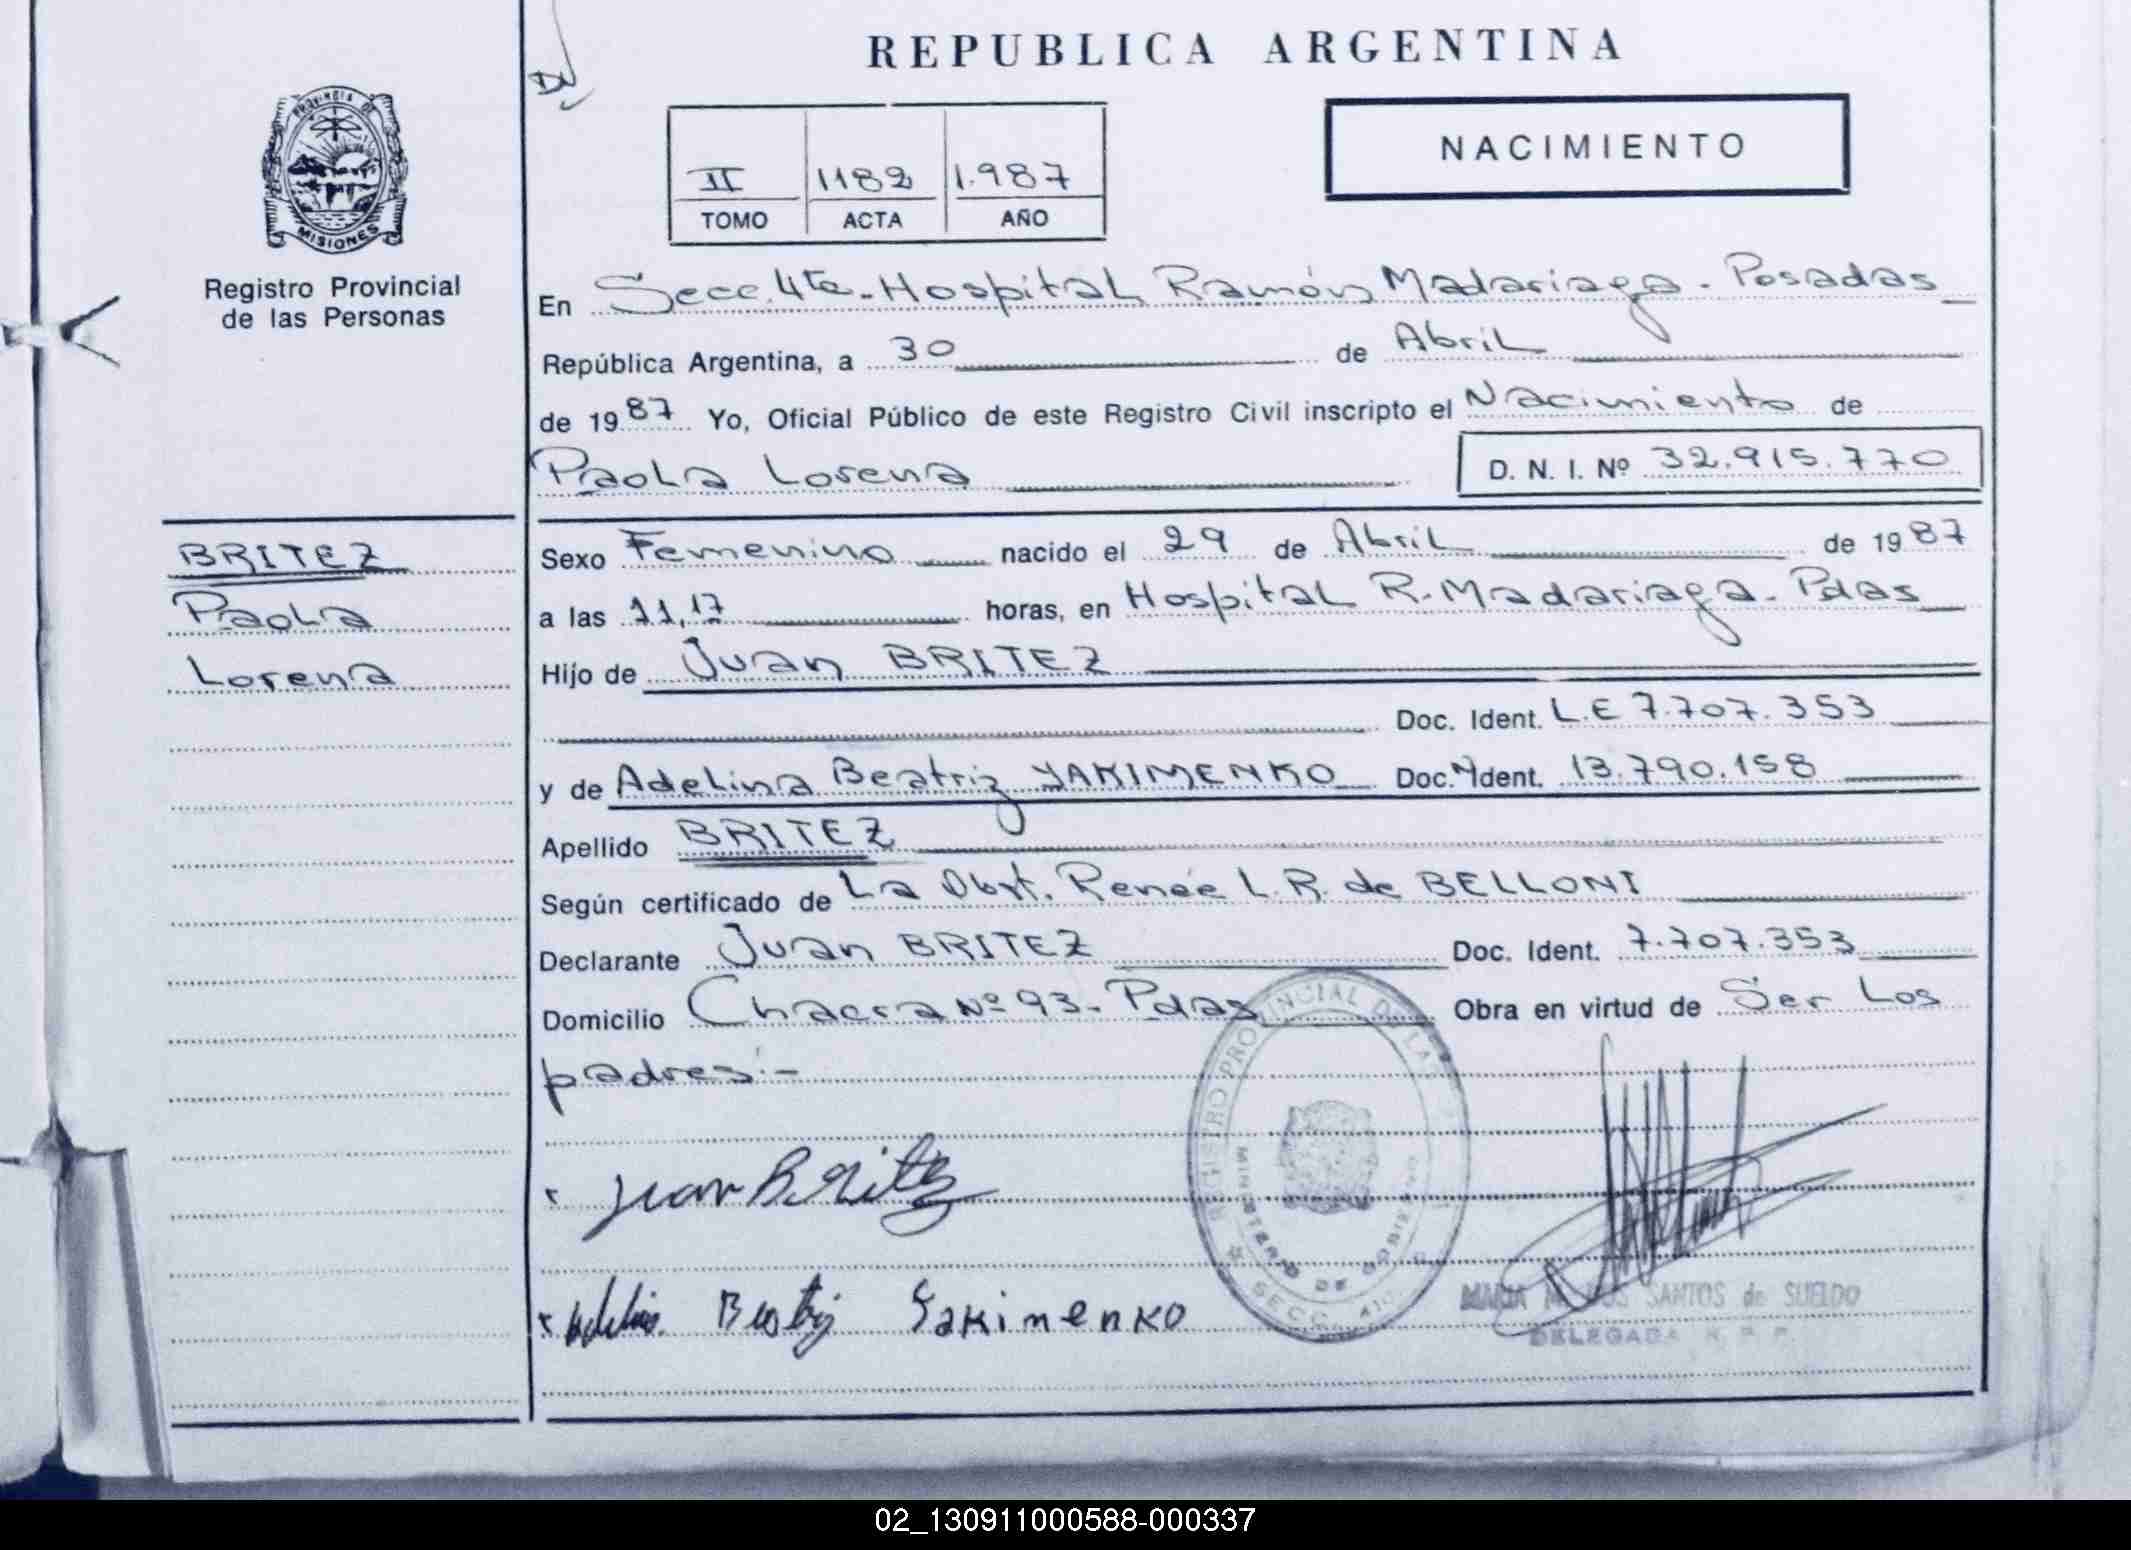 REPUBLICA ARGENTINA
PROVINCIA DE
MISIONES
Registro Provincial
de las Personas
II 1182 1.987
TOMO ACTA AÑO
NACIMIENTO
En Secc. 4ta - Hospital Ramón Madariaga - Posadas
República Argentina, a 30 de Abril
de 1987 Yo, Oficial Público de este Registro Civil inscripto el Nacimiento de
Paola Lorena D. N. I. Nº 32.915.770
BRITEZ
Paola
Lorena
Sexo Femenino nacido el 29 de Abril de 1987
a las 11,17 horas, en Hospital R. Madariaga - Pdas
Hijo de Juan BRITEZ
Doc. Ident. L.E 7.707.353
y de Adelina Beatriz YAKIMENKO Doc. Ident. 13.790.158
Apellido BRITEZ
Según certificado de La Obst. Renée L. R. de BELLONI
Declarante Juan BRITEZ Doc. Ident. 7.707.353
Domicilio Chacra Nº 93 - Pdas Obra en virtud de Ser Los
padres:-
Juan Britez
Beatriz Yakimenko
REGISTRO PROVINCIAL DE LAS
MINISTERIO DE GOBIERNO
SECC.
MARIA SANTOS de SUELDO
DELEGADA R. P. P.
02_130911000588-000337